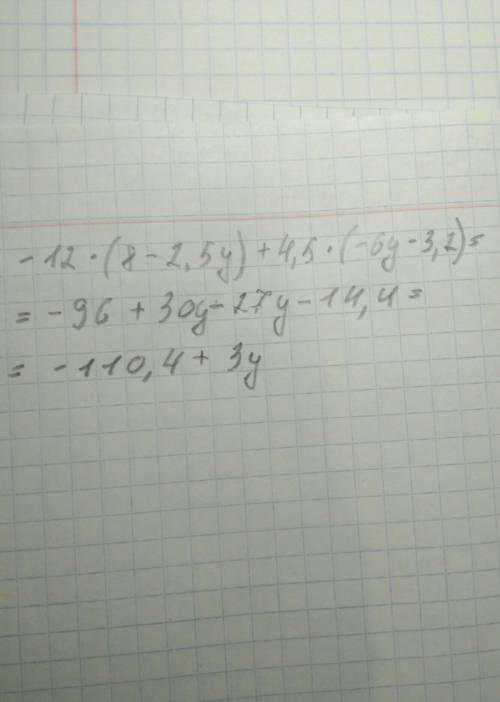 -12·(8-2,5y)+4,5·(-6y-3,2)=
=-96+30y-27y-14,4=
=-110,4+3y